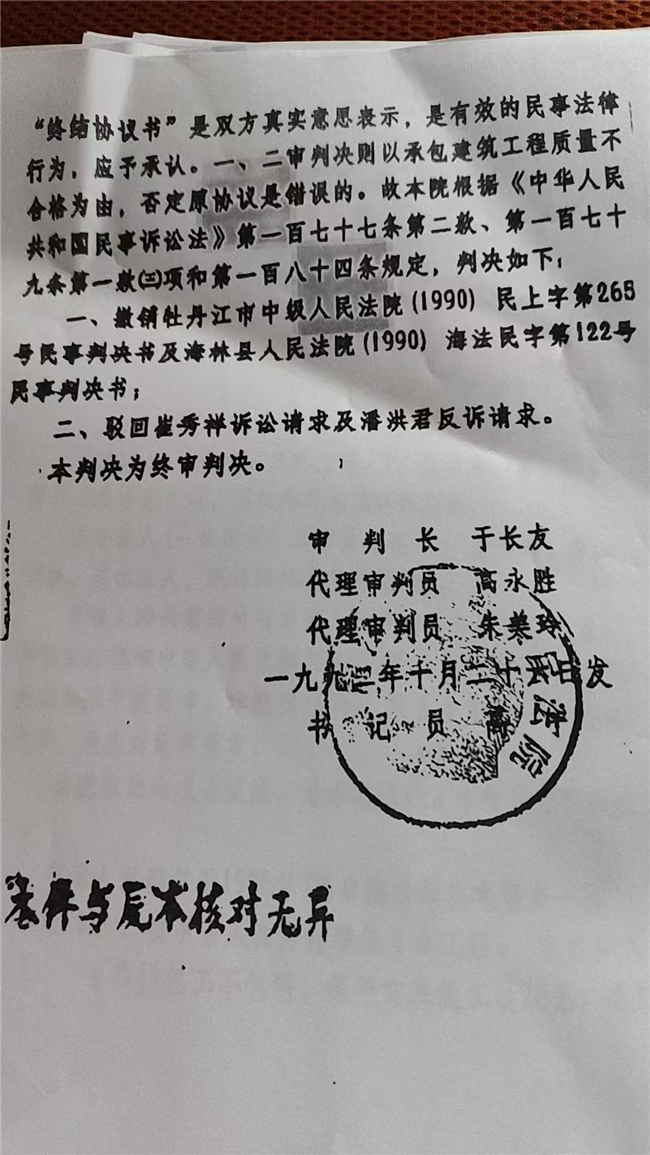 “终结协议书”是双方真实意愿表示，是有效的民事法律
行为，应予承认。一、二审判决则以承包建筑工程质量不
合格为由，否定原协议是错误的。故本院根据《中华人民
共和国民事诉讼法》第一百七十七条第二款、第一百七十
九条第一款㈢项和第一百八十四条规定，判决如下：
一、撤销牡丹江市中级人民法院(1990)民上字第265
号民事判决书及海林县人民法院(1990)海法民字第122号
民事判决书；
二、驳回崔秀祥诉讼请求及潘洪君反诉请求。
本判决为终审判决。
审判长 于长友
代理审判员 高永胜
代理审判员 朱美玲
一九九二年十月二十 日发
书记员 高
法院
本件与原本核对无异